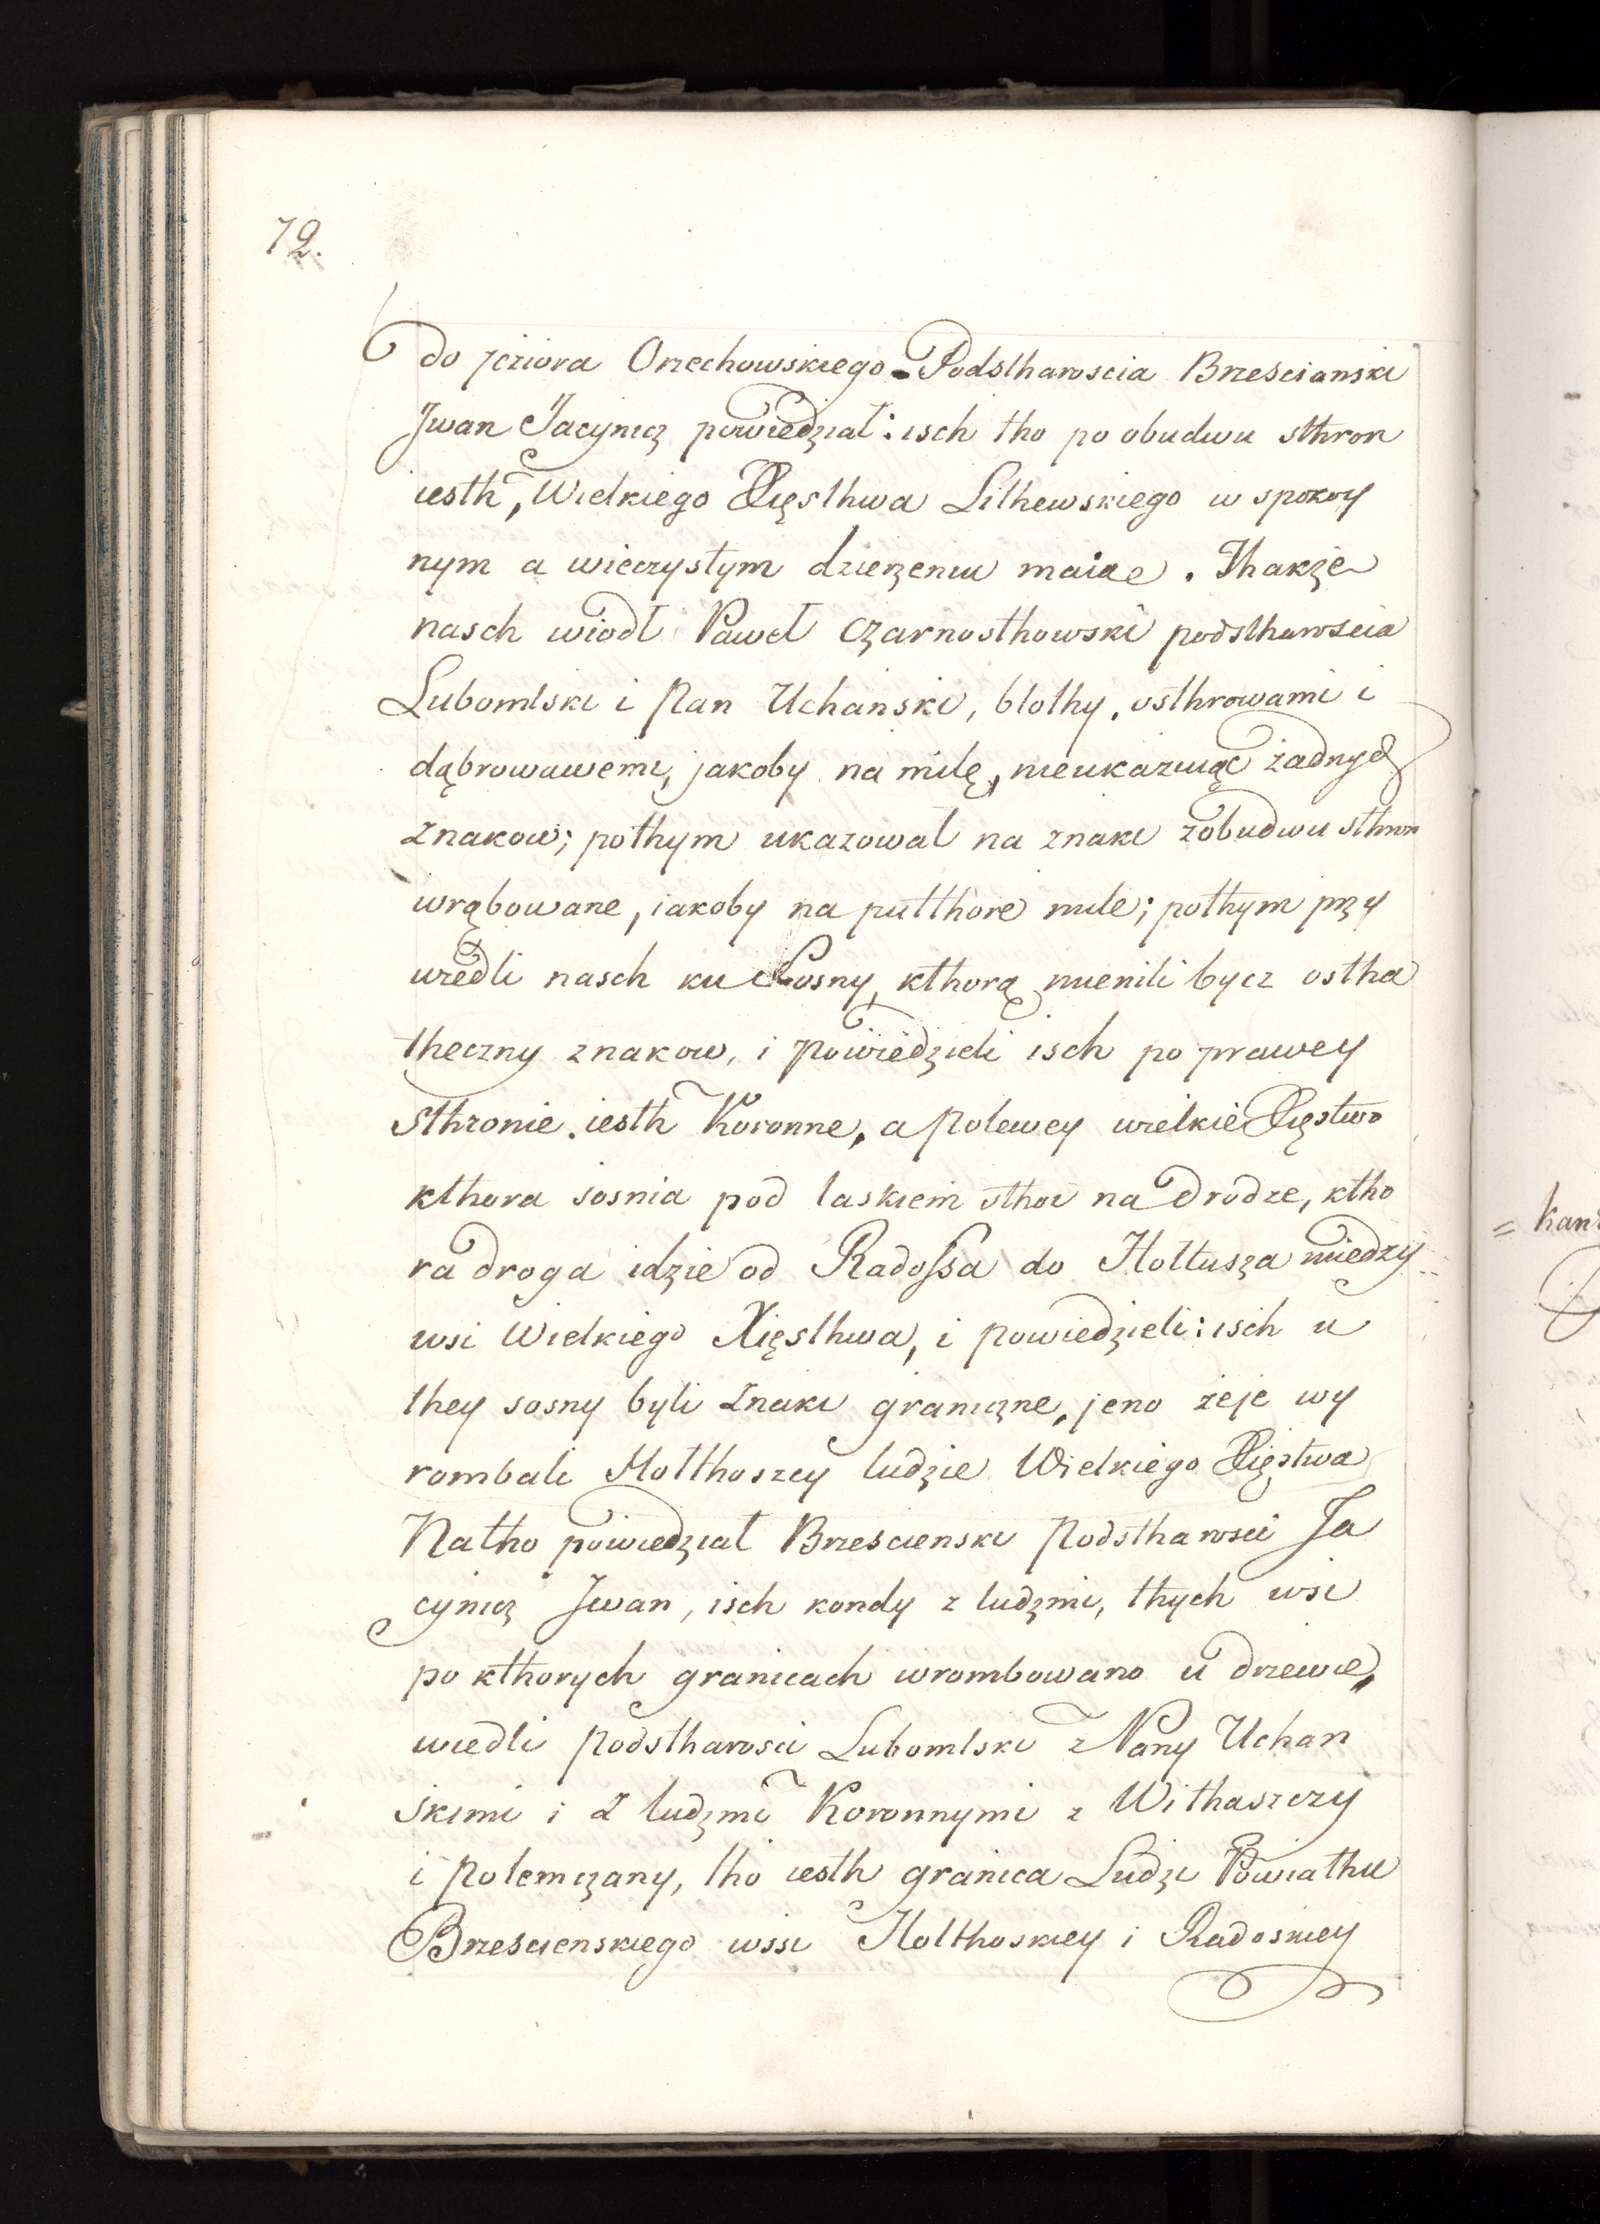 72.
do jeziora Orzechowskiego - Podstharoscia Brzescianski
Jwan Jacynicz powiedział: isch tho po obudwu sthron
iesth, Wielkiego Xięsthwa Lithewskiego w spokoy
nym a wieczystym dzierzeniu maiąc. Thakże
nasch wiodł Paweł Czarnosthowski podstharoscia
Lubomlski i Pan Uchański, błothy, osthrowami i
dąbrowawemi, jakoby na milę, nieukazuiąc żadnych
znakow; pothym ukazował na znaki zobudwu sthron
wrąbowane, iakoby na pułthore mile; pothym przy
wiedli nasch ku Sosny, kthorą mienili bycz ostha
theczny znakow, i powiedzieli isch po prawey
sthronie iesth Koronne, a polewey wielkie Xięstwo
kthora sosnia pod laskiem sthoi na drodze, ktho
ra droga idzie od Radossa do Hołtusza miedzy
wsi Wielkiego Xięsthwa, i powiedzieli: isch u
they sosny byli znaki graniczne, jeno żeje wy
rombali Hołthoszcy ludzie Wielkiego Xięstwa
Natho powiedział Brzescienski Podstharosci Ja
cynicz Jwan, isch kondy z ludzmi, thych wsi
po kthorych granicach wrombowano u drzewie,
wiedli Podstharosci Lubomlski z Pany Uchań
skimi i z ludzmi Koronnymi z Withaszczy
i Polemczany, tho iesth granica Ludzi Powiathu
Brzescienskiego wssi Holthoskiey i Radoskiey
= kan